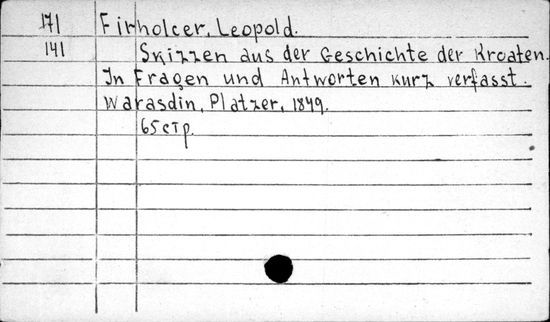 171 Firholcer, Leopold.
141 Skizzen aus der Geschichte der Kroaten.
In Fragen und Antworten kurz verfasst.
Warasdin, Platzer, 1849.
65 стр.